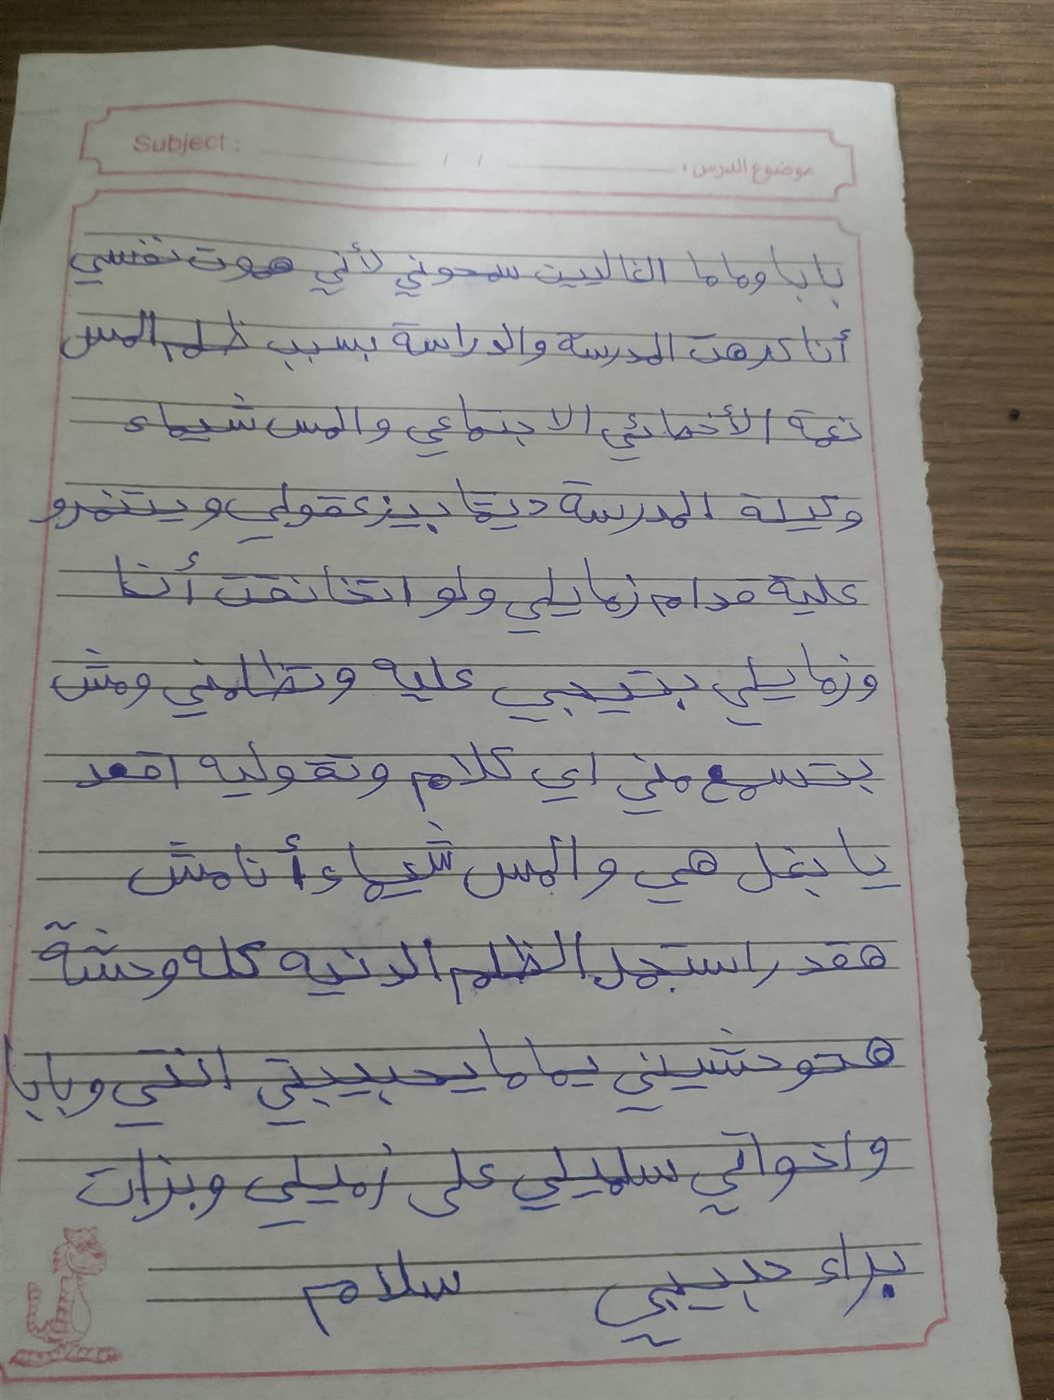 Subject : / / موضوع الدرس :
بابا وماما الغاليين سمحوني لأني هموت نفسي
أنا كرهت المدرسة والدراسة بسبب ظلم المس
نعمة الأخصائي الاجتماعي والمس شيماء
وكيلة المدرسة ديما بيزعقولي ويتنمرو
علية قدام زمايلي ولو اتخانقت أنا
وزمايلي بتيجي عليه وتظلمني ومش
بتسمع مني اي كلام وتقوليه اقعد
يا بغل هي والمس شيماء أنا مش
هقدر استحمل الظلم الدنيه كله وحشة
هتوحشيني يماما يحبيبتي انتي وبابا
واخواتي سلميلي على زميلي وبزات
براء حبيبي سلام